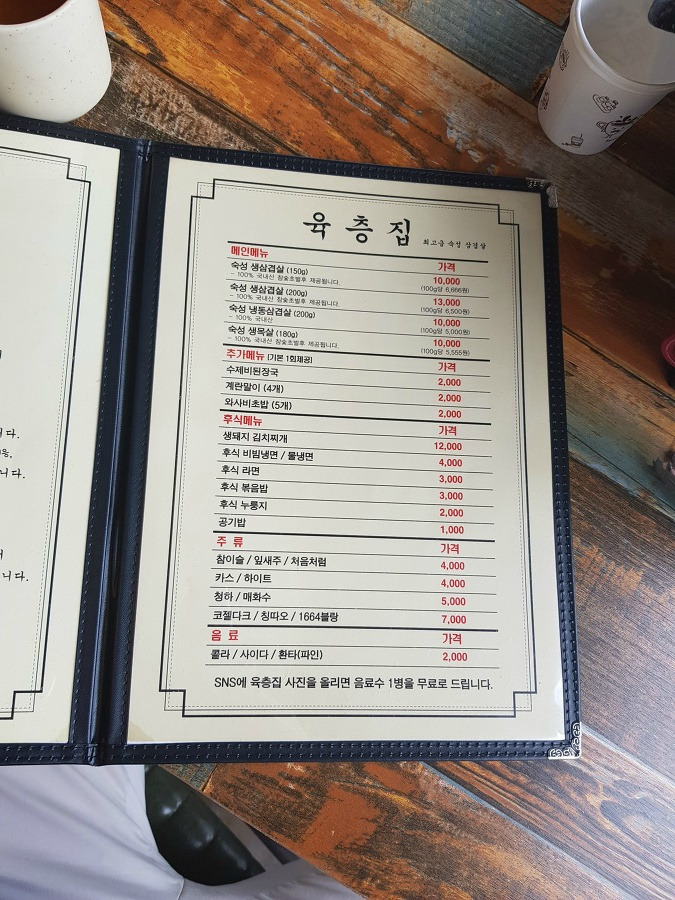 다.
니다.
니다.
육층집 최고급 숙성 삼겹살
메인메뉴 가격
숙성 생삼겹살 (150g) 10,000
- 100% 국내산 참숯초벌후 제공됩니다. (100g당 6,666원)
숙성 생삼겹살 (200g) 13,000
- 100% 국내산 참숯초벌후 제공됩니다. (100g당 6,500원)
숙성 냉동삼겹살 (200g) 10,000
- 100% 국내산 (100g당 5,000원)
숙성 생목살 (180g) 10,000
- 100% 국내산 참숯초벌후 제공됩니다. (100g당 5,555원)
추가메뉴 [기본 1회제공] 가격
수제비된장국 2,000
계란말이 (4개) 2,000
와사비초밥 (5개) 2,000
후식메뉴 가격
생돼지 김치찌개 12,000
후식 비빔냉면 / 물냉면 4,000
후식 라면 3,000
후식 볶음밥 3,000
후식 누룽지 2,000
공기밥 1,000
주 류 가격
참이슬 / 잎새주 / 처음처럼 4,000
카스 / 하이트 4,000
청하 / 매화수 5,000
코젤다크 / 칭따오 / 1664블랑 7,000
음 료 가격
콜라 / 사이다 / 환타(파인) 2,000
SNS에 육층집 사진을 올리면 음료수 1병을 무료로 드립니다.